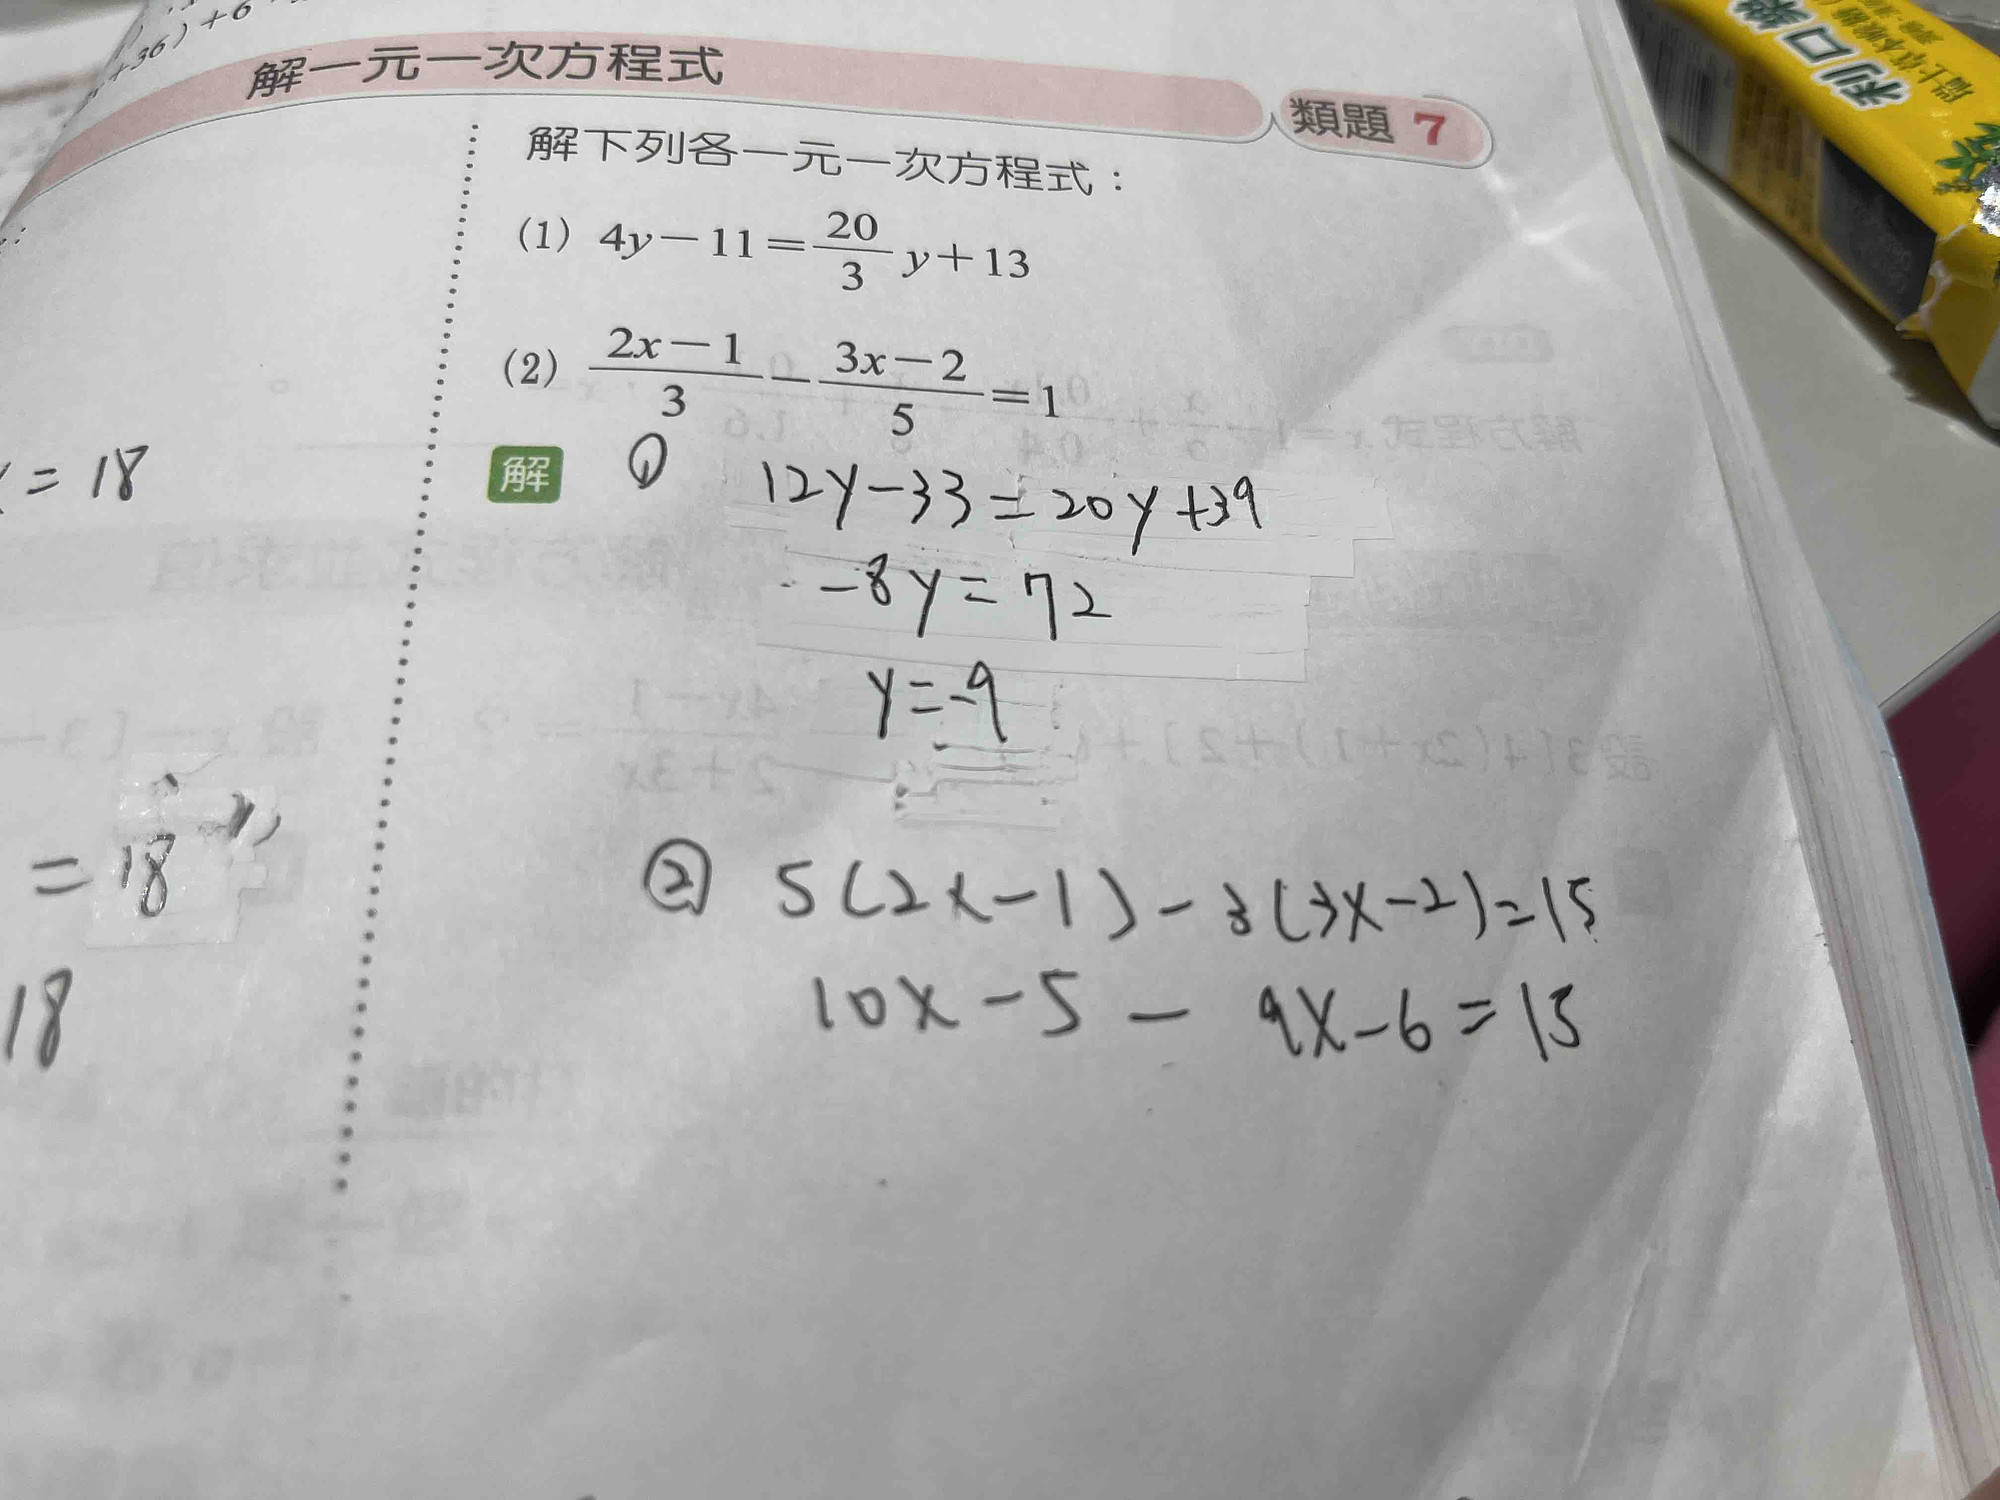 +36)+6
解一元一次方程式
類題 7
解下列各一元一次方程式：
(1) 4y－11＝20/3 y＋13
(2) 2x－1/3－3x－2/5＝1
解
① 12y-33=20y+39
-8y=72
y=-9
② 5(2x-1)-3(3x-2)=15
10x-5-9x-6=15
=18
=18
18
利口樂